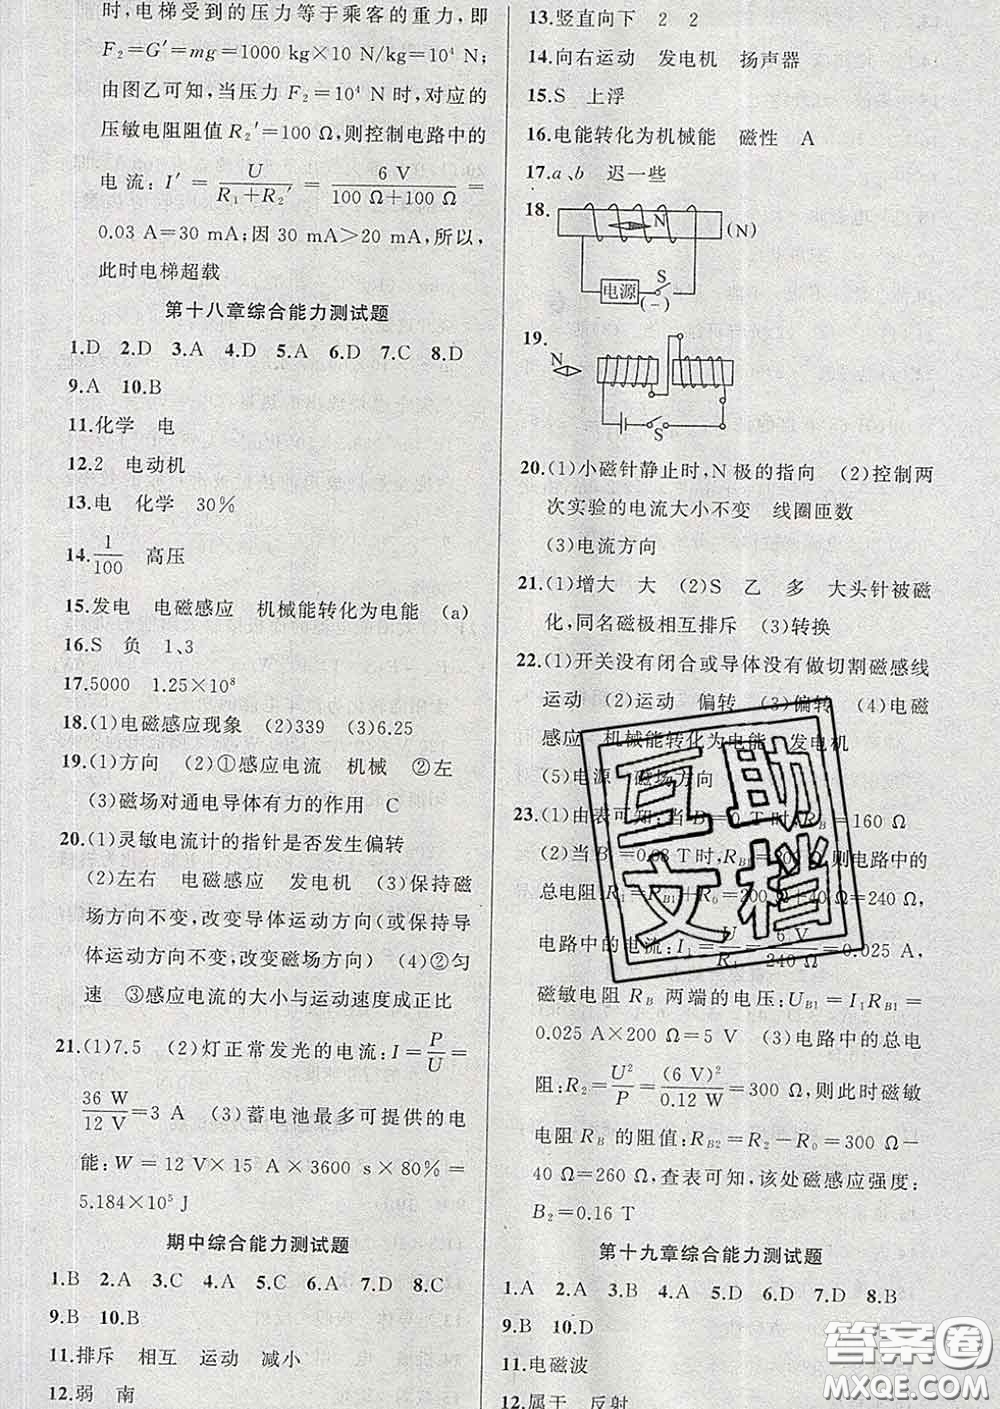 时,电梯受到的压力等于乘客的重力,即
F₂=G′=mg=1000 kg×10 N/kg=10⁴ N;
由图乙可知,当压力 F₂=10⁴ N 时,对应的
压敏电阻阻值 R₂′=100 Ω,则控制电路中的
电流: I′ = U/(R₁+R₂′) = 6 V/(100 Ω+100 Ω) =
0.03 A=30 mA;因 30 mA>20 mA,所以,
此时电梯超载
第十八章综合能力测试题
1.D 2.D 3.A 4.D 5.A 6.D 7.C 8.D
9.A 10.B
11.化学 电
12.2 电动机
13.电 化学 30%
14.1/100 高压
15.发电 电磁感应 机械能转化为电能 (a)
16.S 负 1、3
17.5000 1.25×10⁸
18.(1)电磁感应现象 (2)339 (3)6.25
19.(1)方向 (2)①感应电流 机械 ②左
(3)磁场对通电导体有力的作用 C
20.(1)灵敏电流计的指针是否发生偏转
(2)左右 电磁感应 发电机 (3)保持磁
场方向不变,改变导体运动方向(或保持导
体运动方向不变,改变磁场方向) (4)②匀
速 ③感应电流的大小与运动速度成正比
21.(1)7.5 (2)灯正常发光的电流:I=P/U=
36 W/12 V=3 A (3)蓄电池最多可提供的电
能:W=12 V×15 A×3600 s×80%=
5.184×10⁵ J
期中综合能力测试题
1.B 2.A 3.C 4.A 5.C 6.A 7.D 8.D
9.B 10.B
11.排斥 相互 运动 减小
12.弱 南
13.竖直向下 2 2
14.向右运动 发电机 扬声器
15.S 上浮
16.电能转化为机械能 磁性 A
17.a、b 迟一些
18.
N
(N)
电源
S
(−)
19.
N
S
20.(1)小磁针静止时,N 极的指向 (2)控制两
次实验的电流大小不变 线圈匝数
(3)电流方向
21.(1)增大 大 (2)S 乙 多 大头针被磁
化,同名磁极相互排斥 (3)转换
22.(1)开关没有闭合或导体没有做切割磁感线
运动 (2)运动 偏转 (3)偏转 (4)电磁
感应 机械能转化为电能 发电机
(5)电源 磁场方向
23.(1)由表可知:当 B=0 T 时,R_B=160 Ω
(2)当 B₁=0.08 T 时,R_B1=200 Ω,则电路中的
总电阻:R₁=R_B1+R₀=200 Ω+40 Ω=240 Ω,
电路中的电流:I₁=U/R₁=6 V/240 Ω=0.025 A,
磁敏电阻 R_B 两端的电压:U_B1=I₁R_B1=
0.025 A×200 Ω=5 V (3)电路中的总电
阻:R₂=U²/P=(6 V)²/0.12 W=300 Ω,则此时磁敏
电阻 R_B 的阻值:R_B2=R₂−R₀=300 Ω−
40 Ω=260 Ω,查表可知,该处磁感应强度:
B₂=0.16 T
第十九章综合能力测试题
1.A 2.A 3.B 4.A 5.D 6.D 7.D 8.B
9.B 10.D
11.电磁波
12.属于 反射
互助
文档
答案圈
MXQE.COM